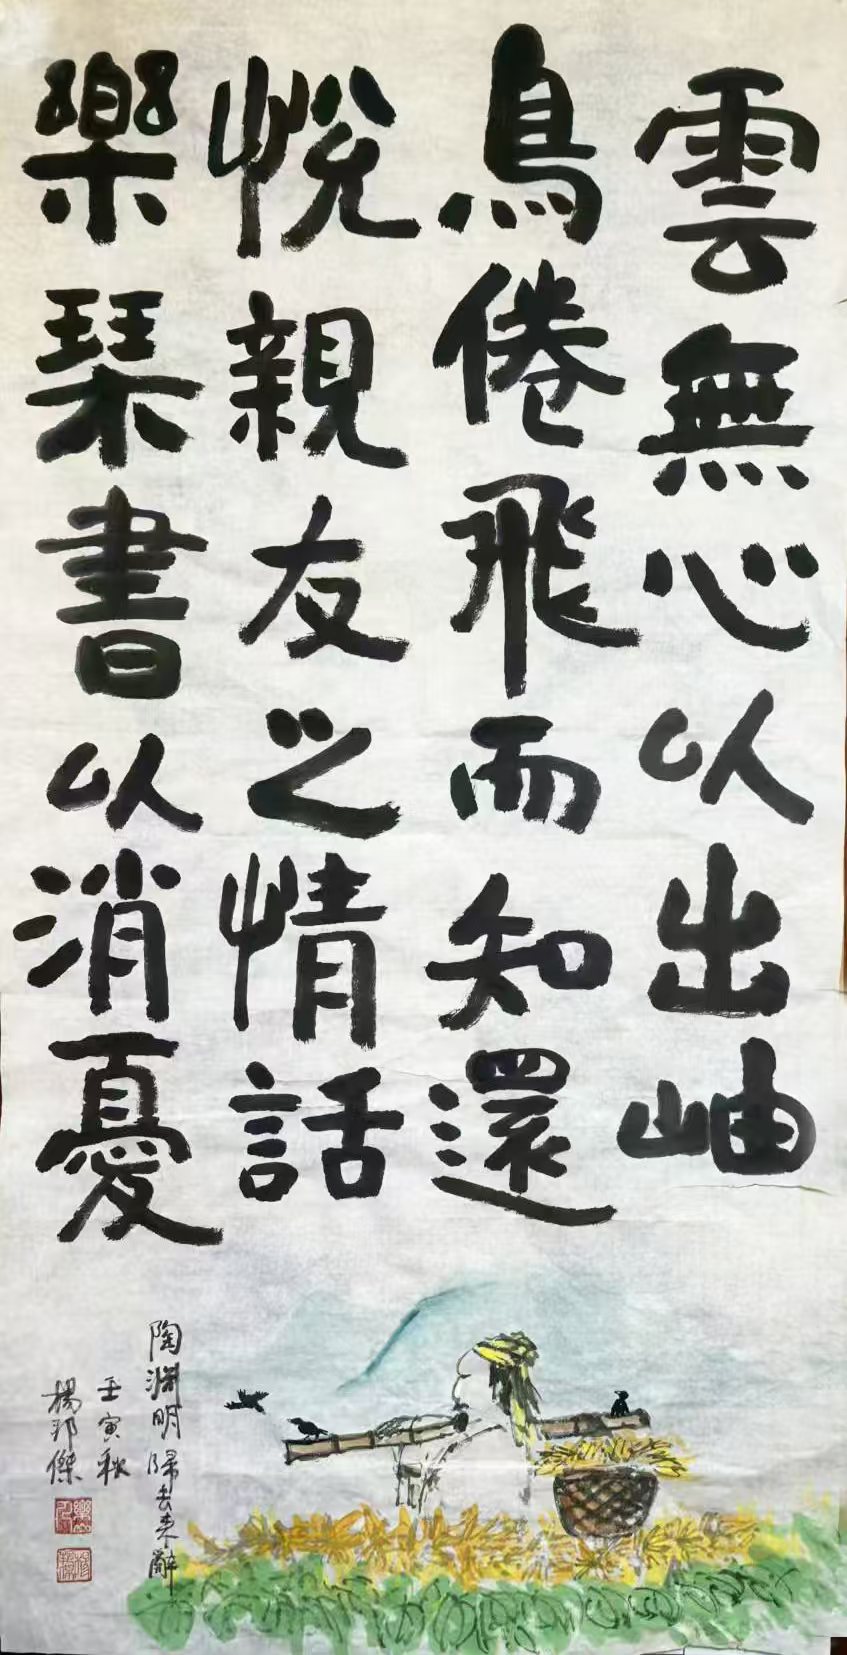 雲無心以出岫
鳥倦飛而知還
悅親友之情話
樂琴書以消憂
陶淵明歸去來辭
壬寅秋
楊邦傑